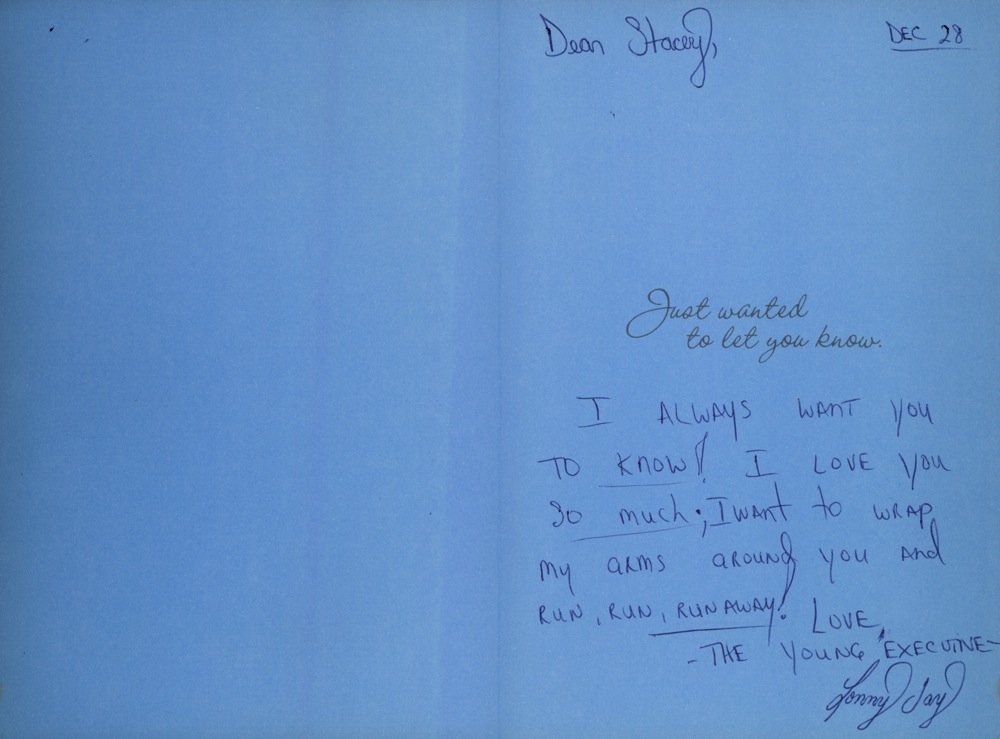 Dear Stacey,
DEC 28
Just wanted
to let you know.
I ALWAYS WANT YOU
TO KNOW! I LOVE YOU
SO much; I WANT to WRAP
MY ARMS AROUND YOU AND
RUN, RUN, RUN AWAY! LOVE,
- THE YOUNG "EXECUTIVE -